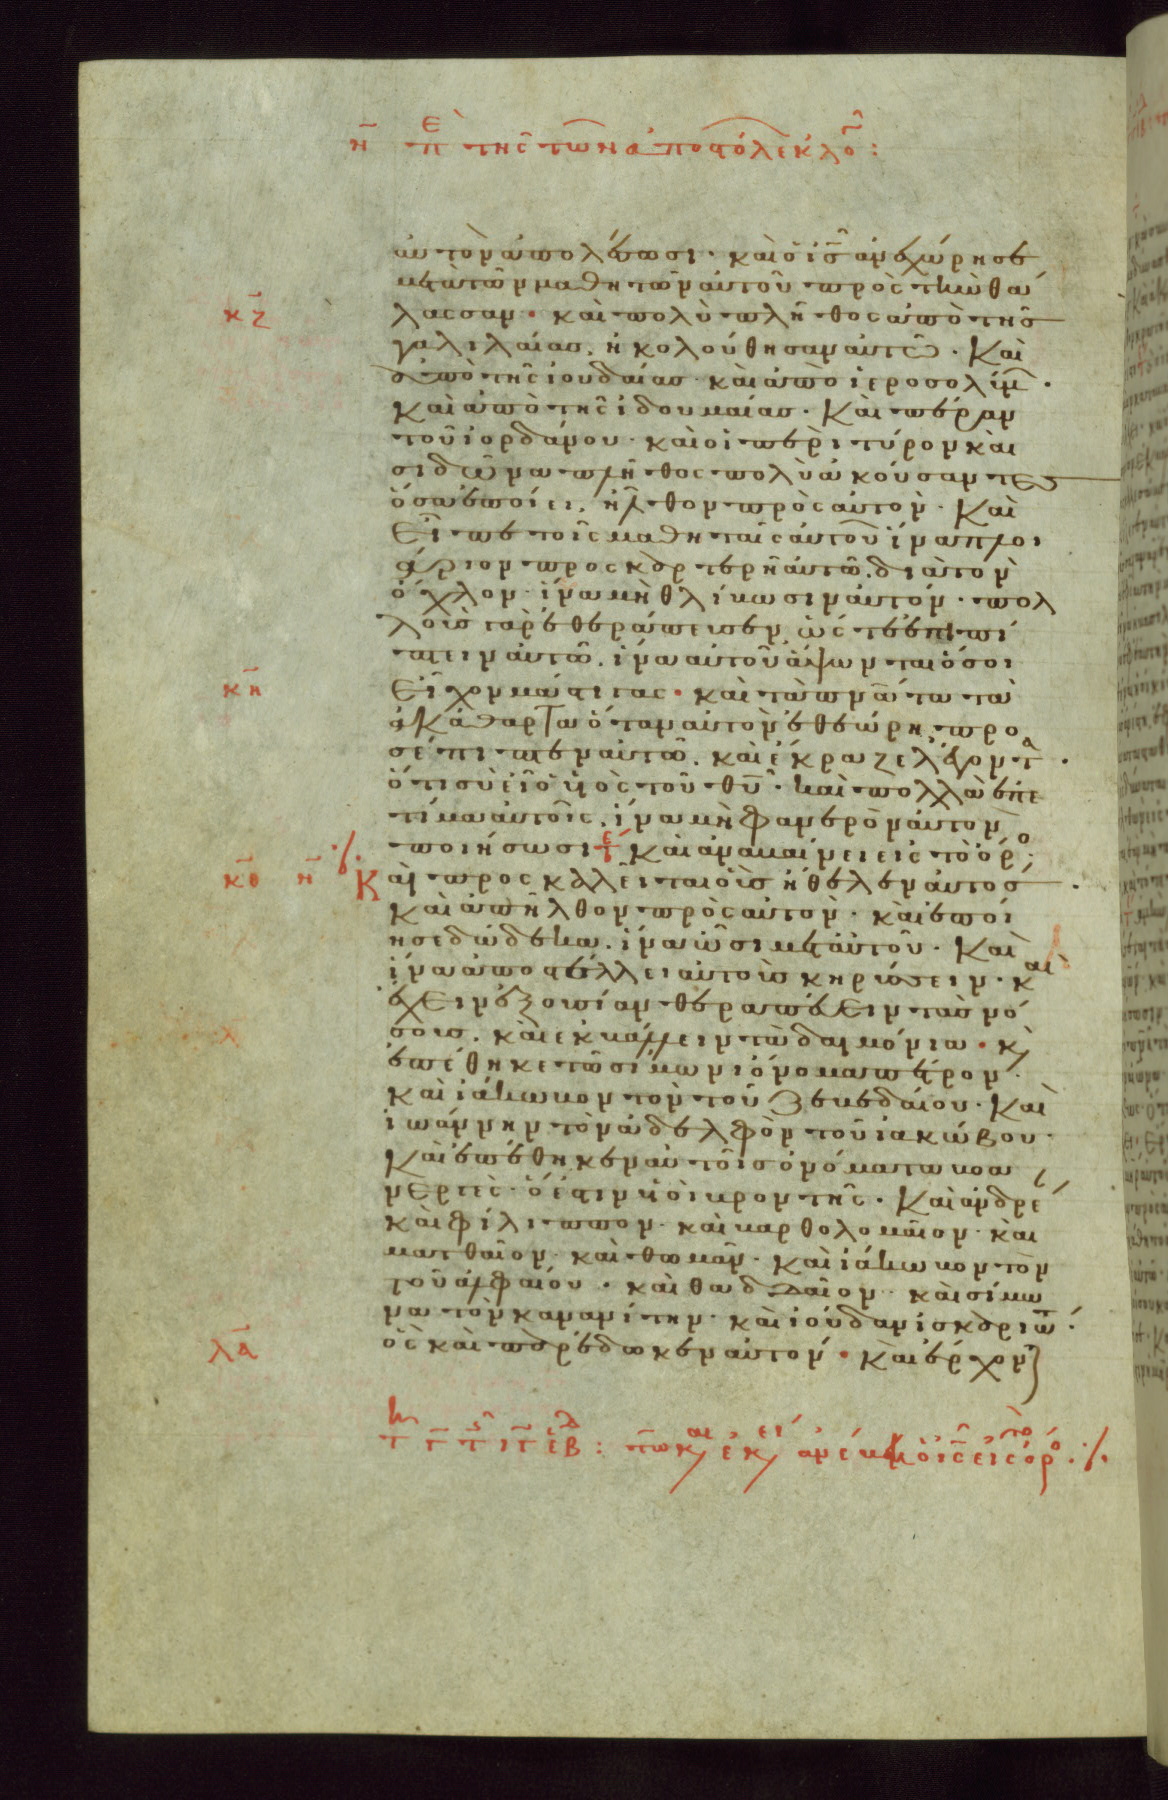 η̅ πε τῆς τῶν ἀποστόλ ἐκλο:
αὐτὸν ἀπολέσωσι· καὶ ὁ ις̅ ἀνεχώρησε
μετὰ τῶν μαθητῶν αὐτοῦ πρὸς τὴν θά
κζ̅ λασσαν· καὶ πολὺ πλῆθος ἀπὸ τῆς
γαλιλαίας, ἠκολούθησαν αὐτῶ· Καὶ
ἀπὸ τῆς ἰουδαίας καὶ ἀπὸ ἱεροσολύμ·
Καὶ ἀπὸ τῆς ἰδουμαίας· Καὶ πέραν
τοῦ ἰορδάνου· καὶ οἱ περὶ τύρον καὶ
σιδῶνα πλῆθος πολὺ ἀκούσαντες
ὅσα ἐποίει, ἦλθον πρὸς αὐτόν· Καὶ
εἶπε τοῖς μαθηταῖς αὐτοῦ ἵνα πλοι
άριον προσκαρτερῆ αὐτῶ, διὰ τὸν
ὄχλον· ἵνα μὴ θλίβωσιν αὐτόν· πολ
λοὺς γὰρ ἐθεράπευσεν, ὥστε ἐπιπί
πτειν αὐτῶ, ἵνα αὐτοῦ ἅψωνται ὅσοι
κη̅ εἶχον μάστιγας· καὶ τὰ πνα̅τα τὰ
ἀκάθαρτα ὅταν αὐτὸν ἐθεώρη, προ
σέπιπτεν αὐτῶ, καὶ ἔκραζε λέγοντα·
ὅτι σὺ εἶ ὁ υἱὸς τοῦ θυ̅· καὶ πολλὰ ἐπε
τίμα αὐτοῖς, ἵνα μὴ φανερὸν αὐτὸν
ποιήσωσι τε Καὶ ἀναβαίνει εἰς τὸ ὄρο·
κθ̅ η̅ Καὶ προσκαλεῖται οὓς ἤθελεν αὐτός·
Καὶ ἀπῆλθον πρὸς αὐτόν· καὶ ἐποί
ησε δώδεκα, ἵνα ὦσι μετ αὐτοῦ· Καὶ
ἵνα ἀποστέλλει αὐτοὺς κηρύσσειν· καὶ
ἔχειν ἐξουσίαν θεραπεύειν τὰς νό
λ̅ σους, καὶ ἐκβάλλειν τὰ δαιμόνια· κ
ἐπέθηκε τῶ σίμωνι ὄνομα πέτρον·
καὶ ἰάκωβον τὸν τοῦ ζεβεδαίου· Καὶ
ἰωάννην τὸν ἀδελφὸν τοῦ ἰακώβου·
Καὶ ἐπέθηκεν αὐτοῖς ὀνόματα βοα
νεργὲς· ὅ ἐστιν υἱοὶ βροντῆς· Καὶ ἀνδρέ
καὶ φίλιππον· καὶ βαρθολομαῖον· καὶ
ματθαῖον· καὶ θωμᾶν· καὶ ἰάκωβον τὸν
τοῦ ἀλφαίου· καὶ θαδδαῖον· καὶ σίμω
να τὸν κανανίτην· καὶ ἰούδαν ἰσκαριώ·
λα̅ ὃς καὶ παρέδωκεν αὐτόν· καὶ ἔρχον
τῶ κ ἐκ ἀνέβη ὁ ις̅ εἰς τὸ ὄρο